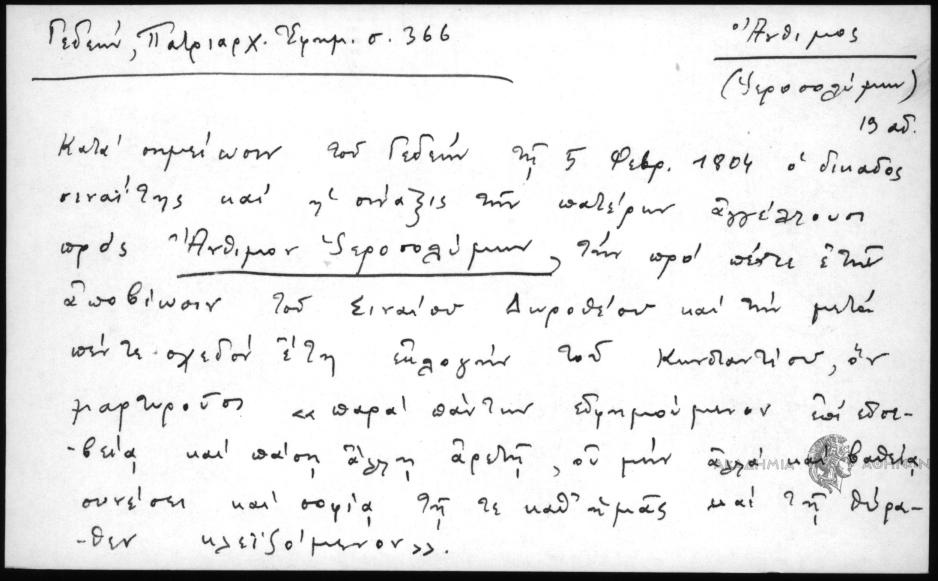 Γεδεών, Πατριαρχ. Ἐφημ. σ. 366
Ἄνθιμος
(Ἱεροσολύμων)
19 αδ.
Κατά σημείωσιν τοῦ Γεδεών τῇ 5 Φεβρ. 1804 ὁ δικαῖος
σιναΐτης καί ἡ σύναξις τῶν πατέρων ἀγγέλτουσι
πρός Ἄνθιμον Ἱεροσολύμων, τήν πρό πέντε ἐτῶν
ἀποβίωσιν τοῦ Σιναίου Δωροθέου καί τήν μετά
πέντε σχεδόν ἔτη ἐκλογήν τοῦ Κωνσταντίου, ὅν
μαρτυροῦσι «παρά πάντων εὐφημούμενον ἐπί εὐσε-
-βείᾳ καί πάσῃ ἄλλῃ ἀρετῇ, οὐ μήν ἀλλά καί βαθείᾳ
συνέσει καί σοφίᾳ τῇ τε καθ' ἡμᾶς καί τῇ θύρα-
-θεν κλεϊζόμενον».
ΑΚΑΔΗΜΙΑ ΑΘΗΝΩΝ